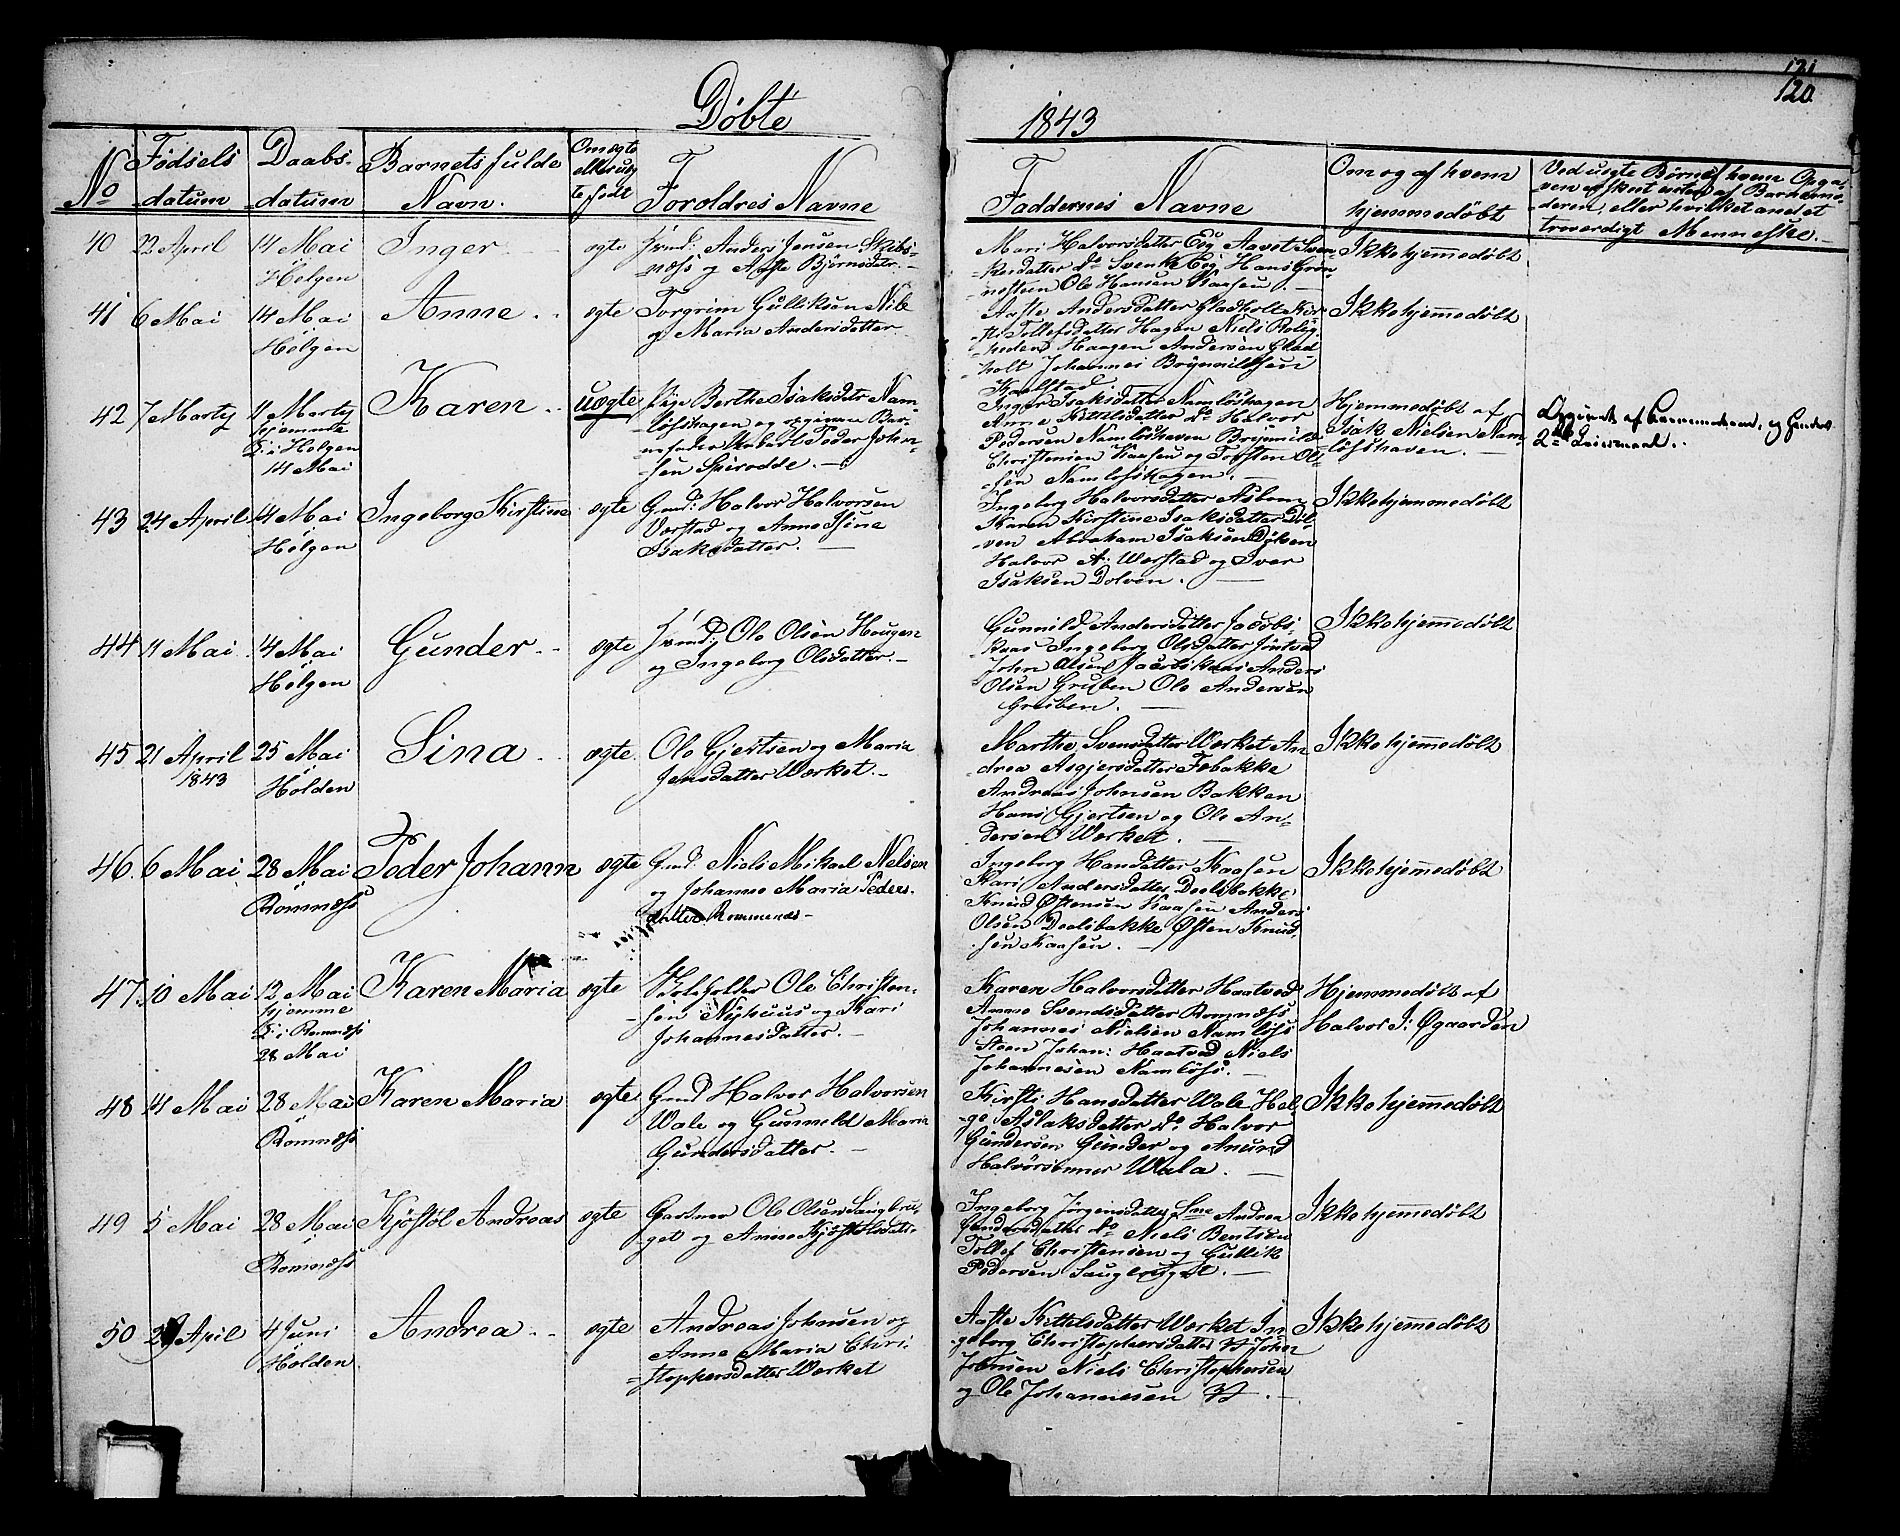 121
120
Døbte
1843
No
Fødsels
datum
Daabs-
datum
Barnets fulde
Navn.
Om ægte
eller uæg
te født
Foroldres Navne
Faddernes Navne
Om og af hvem
hjemmedøbt
Ved uægte Børn af hvem Opga-
ven er skeet enten af Barnemo-
deren, eller hvilket andet
troverdigt Menneske.
40 22 April
14 Mai
Holgen
Inger
ægte
Anders Jensen Skibs-
næss og Aaste Bjørnsdatr.
Mari Halvorsdatter Eeg Aavet Sven-
kesdatter do Svenke Eeg Hans Grøn-
nesteen Ole Hansen Kaasen.
Ikke hjemmedøbt
41 6 Mai
14 Mai
Holgen
Anne
ægte
Torgrim Gulliksen
og Maria Andersdatter
Aaste Andersdatter Gladholt Kir-
sti Tollefsdatter Hagen Niels Rolig-
heden Haagen Andersen Glad-
holt Johannes Brynnildsen
Ikke hjemmedøbt
42 7 Martij
11 Martij
hjemme
D: i Holgen
14 Mai
Karen
uægte
Pige Berthe Isaksdtr Nam-
løshagen og
Peder John-
sen Spirodde.
Inger Isaksdatter Namløshagen
Anne Kittilsdatter do Halvor
Pedersen Namløshaven Brynnild
Christensen Kaasen og Torsten Ol-
sen Namløshagen.
Hjemmedøbt af
Isak Nielsen Nam-
løshaven.
af Barnemoderen, og
2det Leiermaal.
43 24 April
14 Mai
Holgen
Ingeborg Kirstine
ægte
Gmd: Halvor Halvorsen
Verstad og Anne Sine
Isaksdatter.
Ingeborg Halvorsdatter
Karen Kirstine Isaksdatter Dol-
ven Abraham Isaksen
Halvor A: Werstad og Iver
Isaksen Dolven.
Ikke hjemmedøbt
44 11 Mai
14 Mai
Holgen
Gunder
ægte
Ole Olsen Hougen
og Ingeborg Olsdatter.
Gunnild Andersdatter Jacobs-
kaas Ingeborg Olsdatter
John Olsen Jacobskaas Anders
Olsen Gruben Ole Andersen
Gruben.
Ikke hjemmedøbt
45 21 April
1843
25 Mai
Holden
Sina
ægte.
Ole Gjertsen og Maria
Jensdatter Værket.
Marthe Svensdatter Værket An-
drea Asgjersdatter
Andreas Johnsen Bakken
Hans Gjertsen og Ole An-
dersen Værket.
Ikke hjemmedøbt
46. 6 Mai
28 Mai
Romnæss
Peder Johann
ægte
Gmd: Niels Mikael Nelsen
og Johanne Maria Peders-
datter Romnæs
Ingeborg Handatter Kaasen
Kari Andersdatter Doelsbakke
Knud Østensen Kaasen Anders
Olsen Doelsbakke Østen Knud-
sen Kaasen.
Ikke hjemmedøbt
47. 10 Mai
12 Mai
hjemme
D: i Romnæss
28 Mai
Karen Maria
ægte
Skoleholder Ole Christen-
sen Nyhuus og Kari
Johannesdatter.
Karen Halvorsdatter Haatved
Anne Svendsdatter Romnæss
Johannes Nielsen Namløss
Steen Johan: Haatved Niels
Johannesen Namløss.
Hjemmedøbt af
Halvor J: Øgaarden
48 11 Mai
28 Mai
Romnæss
Karen Maria
ægte
Gmd Halvor Halvorsen
Wale og Gunneld Maria
Gundersdatter.
Kirsti Hansdatter Wale Hel-
ge Aslaksdatter do Halvor
Gundersen Gunder og Anund
Halvorsønner Wala.
Ikke hjemmedøbt
49 5 Mai
28 Mai
Romnæss
Kjøstøl Andreas
ægte
Gartner Ole Olsen Saugbru-
get og Anne Kjøstolsdatr.
Ingeborg Jørgensdatter Andrea
do Niels Bentsen
Tollef Christensen og Gullik
Pedersen Saugbruget.
Ikke hjemmedøbt
50 April
4 Juni
Holden.
Andrea
ægte
Andreas Johnsen og
Anne Maria Chri-
stophersdatter Værket
Aaste Kittelsdatter Værket In-
geborg Christophersdatter
Johnsen Niels Christophersen
og Ole Johannesen
Ikke hjemmedøbt